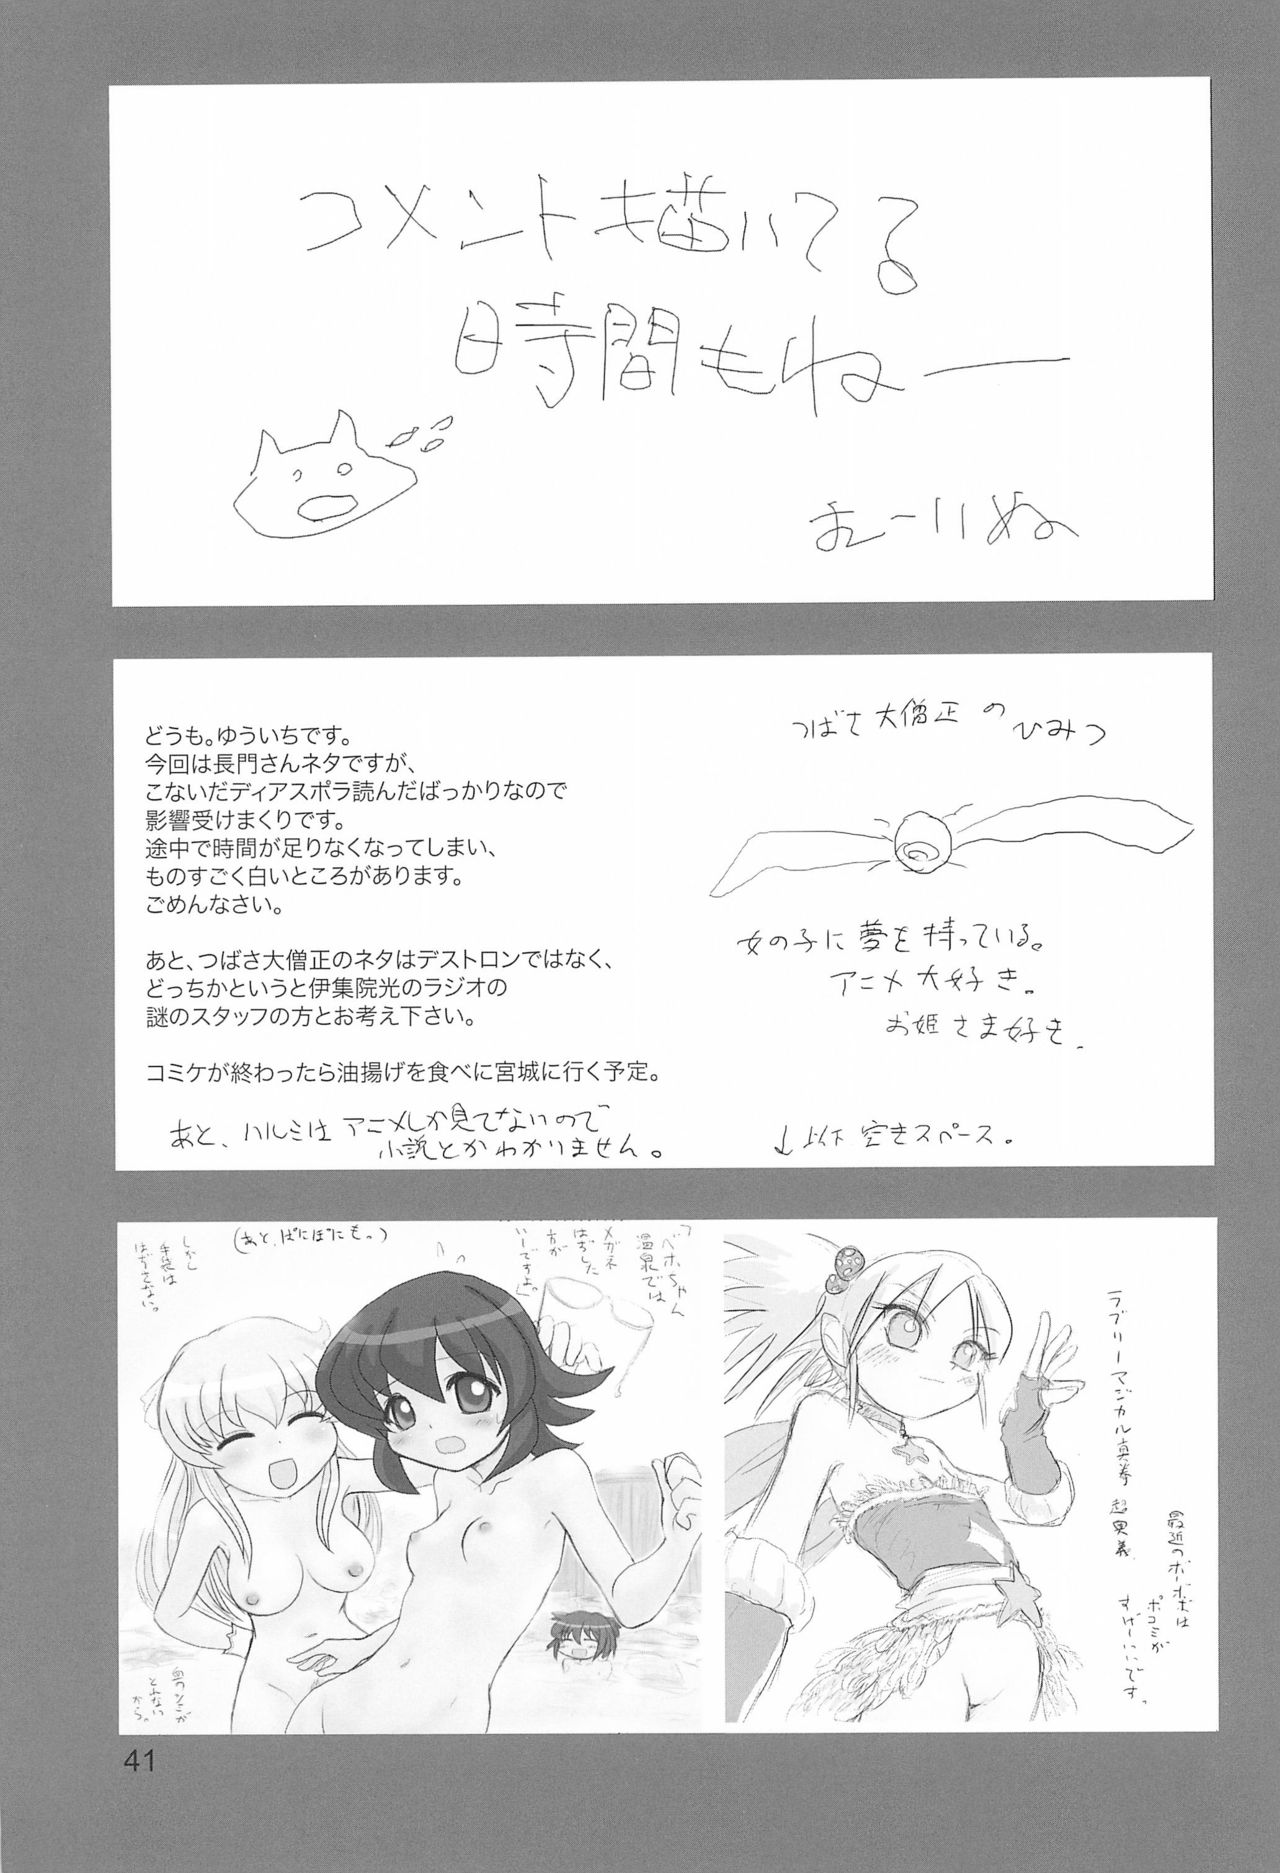 コメント描いてる
時間もねー
むーいぬ
どうも。ゆういちです。
今回は長門さんネタですが、
こないだディアスポラ読んだばっかりなので
影響受けまくりです。
途中で時間が足りなくなってしまい、
ものすごく白いところがあります。
ごめんなさい。
あと、つばさ大僧正のネタはデストロンではなく、
どっちかというと伊集院光のラジオの
謎のスタッフの方とお考え下さい。
コミケが終わったら油揚げを食べに宮城に行く予定。
あと、ハルミはアニメしか見てないので
小説とかわかりません。
つばさ大僧正のひみつ
女の子に夢を持っている。
アニメ大好き。
お姫さま好き.
↓以下空きスペース。
「ベホちゃん
温泉では
メガネ
はずした
方が
いーですよ。」
(あと、ぱにぽにもっ)
しかし
手袋は
はずさない。
とれない
から。
ラブリーマジカル真拳 超奥義
最近のボーボボは
ポコミが
すげーいいです。
41